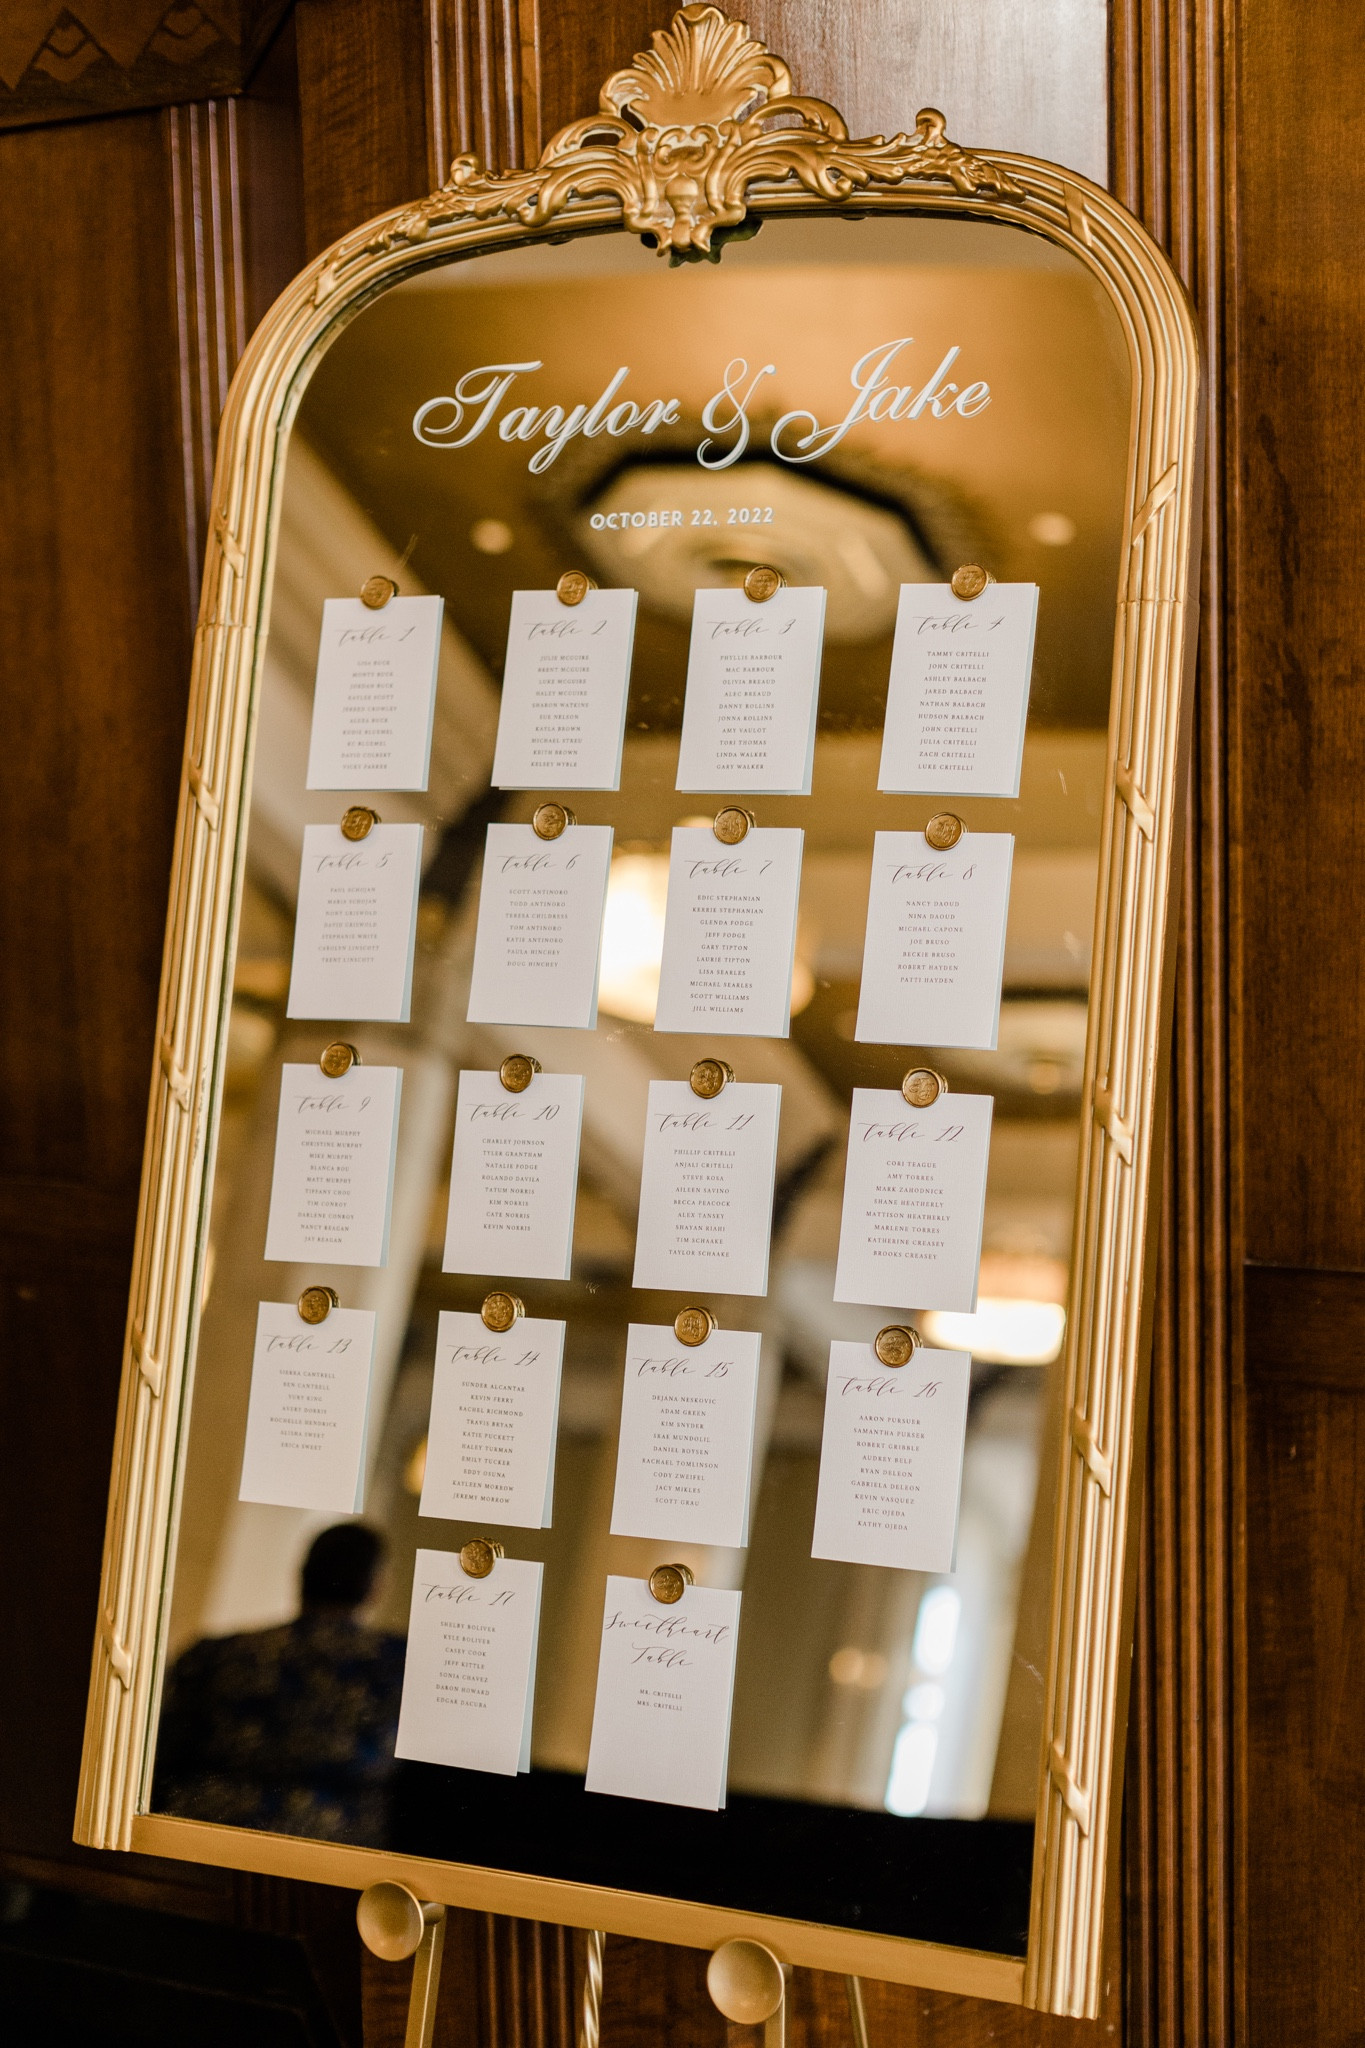 Taylor & Jake
OCTOBER 22, 2022
table 1
LISA BUCK
MONTY BUCK
JORDAN BUCK
KAYLEE SCOTT
JERRED CROWLEY
BUCK
BLUEMEL
BLUEMEL
DAVID COLBERT
VICKY PARKER
table 2
JULIE MCGUIRE
BRENT MCGUIRE
LUKE MCGUIRE
HALEY MCGUIRE
SHARON WATKINS
SUE NELSON
KAYLA BROWN
MICHAEL STREU
KEITH BROWN
KELSEY WYBLE
table 3
PHYLLIS BARBOUR
MAC BARBOUR
OLIVIA BREAUD
ALEC BREAUD
DANNY ROLLINS
JONNA ROLLINS
AMY VAULOT
TORI THOMAS
LINDA WALKER
GARY WALKER
table 4
TAMMY CRITELLI
JOHN CRITELLI
ASHLEY BALBACH
JARED BALBACH
NATHAN BALBACH
HUDSON BALBACH
JOHN CRITELLI
JULIA CRITELLI
ZACH CRITELLI
LUKE CRITELLI
table 5
PAUL SCHOJAN
MARIE SCHOJAN
RONY GRISWOLD
DAVID GRISWOLD
STEPHANIE WHITE
CAROLYN LINSCOTT
TRENT LINSCOTT
table 6
SCOTT ANTINORO
TODD ANTINORO
TERESA CHILDRESS
TOM ANTINORO
KATIE ANTINORO
PAULA HINCHEY
DOUG HINCHEY
table 7
EDIC STEPHANIAN
KERRIE STEPHANIAN
GLENDA FODGE
JEFF FODGE
GARY TIPTON
LAURIE TIPTON
LISA SEARLES
MICHAEL SEARLES
SCOTT WILLIAMS
JILL WILLIAMS
table 8
NANCY DAOUD
NINA DAOUD
MICHAEL CAPONE
JOE BRUSO
BECKIE BRUSO
ROBERT HAYDEN
PATTI HAYDEN
table 9
MICHAEL MURPHY
CHRISTINE MURPHY
MIKE MURPHY
BLANCA ROU
MATT MURPHY
TIFFANY CHOU
TIM CONROY
DARLENE CONROY
NANCY REAGAN
JAY REAGAN
table 10
CHARLEY JOHNSON
TYLER GRANTHAM
NATALIE FODGE
ROLANDO DAVILA
TATUM NORRIS
KIM NORRIS
CATE NORRIS
KEVIN NORRIS
table 11
PHILLIP CRITELLI
ANJALI CRITELLI
STEVE ROSA
AILEEN SAVINO
BECCA PEACOCK
ALEX TANSKY
SHAYAN RIAHI
TIM SCHAAKE
TAYLOR SCHAAKE
table 12
CORI TEAGUE
AMY TORRES
MARK ZAHODNICK
SHANE HEATHERLY
MATTISON HEATHERLY
MARLENE TORRES
KATHERINE CREASEY
BROOKS CREASEY
table 13
SIERRA CANTRELL
BEN CANTRELL
TORY KING
AVERY DORRIS
ROCHELLE HENDRICK
ALISHA SWEET
ERICA SWEET
table 14
SUNDER ALCANTAR
KEVIN FERRY
RACHEL RICHMOND
TRAVIS BRYAN
KATIE PUCKETT
HALEY TURMAN
EMILY TUCKER
EDDY OSUNA
KAYLEEN MORROW
JEREMY MORROW
table 15
DEJANA NESKOVIC
ADAM GREEN
KIM SNYDER
MUNDOLIL
DANIEL BOYSEN
RACHAEL TOMLINSON
CODY ZWEIFEL
JACY MIKLES
SCOTT GRAU
table 16
AARON PURSUER
SAMANTHA PURSER
ROBERT GRIBBLE
AUDREY BELF
RYAN DELEON
GABRIELA DELEON
KEVIN VASQUEZ
ERIC OJEDA
KATHY OJEDA
table 17
SHELBY BOLIVER
KYLE BOLIVER
CASEY COOK
JEFF KITTLE
SONIA CHAVEZ
DARON HOWARD
EDGAR DACUBA
Sweetheart
Table
MR. CRITELLI
MRS. CRITELLI